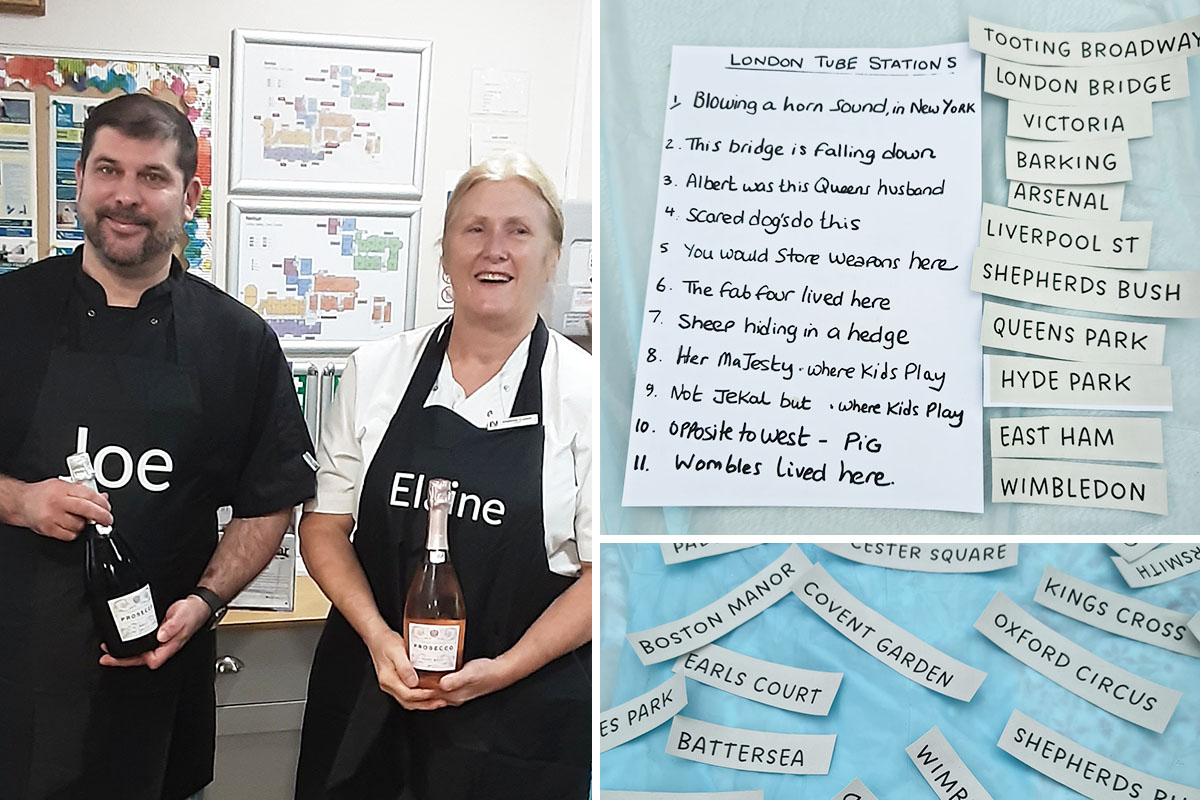 Joe
Elaine
PROSECCO
PROSECCO
LONDON TUBE STATIONS
1, Blowing a horn sound, in New YORK
2. This bridge is falling down
3. Albert was this Queens husband
4. Scared dog's do this
5 You would Store weapons here
6. The fab four lived here
7. Sheep hiding in a hedge
8. Her MaJesty . where Kids Play
9. Not JeKal but . where Kids Play
10. OPPosite to west - PiG
11. Wombles lived here.
TOOTING BROADWAY
LONDON BRIDGE
VICTORIA
BARKING
ARSENAL
LIVERPOOL ST
SHEPHERDS BUSH
QUEENS PARK
HYDE PARK
EAST HAM
WIMBLEDON
CESTER SQUARE
RSMITH
BOSTON MANOR
COVENT GARDEN
KINGS CROSS
OXFORD CIRCUS
EARLS COURT
ES PARK
BATTERSEA
SHEPHERDS BU
WIMB